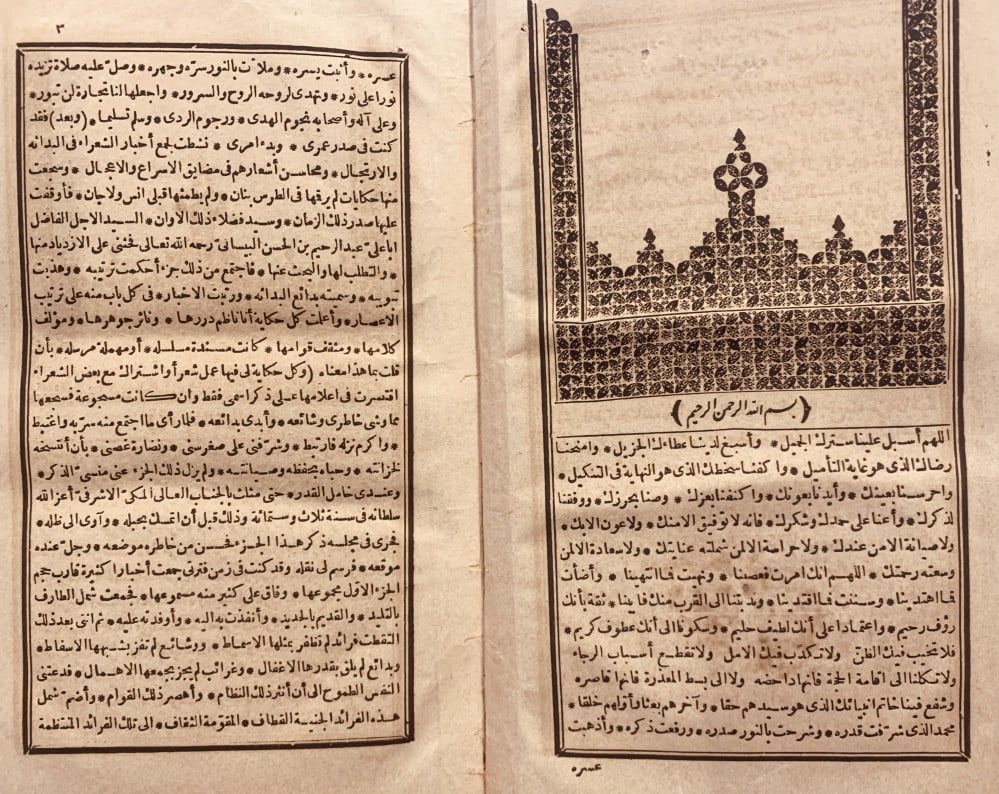 ﴿بسم الله الرحمن الرحيم﴾
اللهم أسبل علينا سترك الجميل * وأسبغ لدينا عطاءك الجزيل * وامنحنا
رضاك الذى هو غاية التأميل * واكفنا سخطك الذى هو النهاية فى التنكيل *
واحرسنا بعينك * وأيدنا بعونك * واكنفنا بعزك * وصنا بحرزك * ووفقنا
لذكرك * وأعنا على حمدك وشكرك * فانه لا توفيق الا منك * ولا عون الا بك *
ولا صيانة الا من عندك * ولا حراسة الا لمن شملته عنايتك * ولا سعادة الا لمن
وسعته رحمتك * اللهم انك امرت فعصينا * ونهيت فما انتهينا * وأضأت
فما اهتدينا * وسننت فما اقتدينا * وندبتنا الى القرب منك فأبينا * ثقة بأنك
رؤف رحيم * واعتمادا على أنك لطيف حليم * وسكونا الى أنك عطوف كريم *
فلا تخيب فيك الظن * ولا تكذب فيك الامل * ولا تقطع أسباب الرجاء *
ولا تكلنا الى اقامة الحجة فانها داحضه * ولا الى بسط المعذرة فانها قاصره *
وشفع فينا خاتم انبيائك الذى هو سيدهم حقا * وآخرهم بعثا وأولهم خلقا *
محمد الذى شرّفت قدره * وشرحت بالنور صدره * ورفعت ذكره * وأذهبت
عسره
٣
عسره * وأثبت يسره * وملأت بالنور سرّه وجهره * وصلّ عليه صلاة تزيده
نورا على نور * وتهدى لروحه الروح والسرور * واجعلها لنا تجارة لن تبور *
وعلى آله وأصحابه نجوم الهدى * ورجوم الردى * وسلم تسليما * (وبعد) فقد
كنت فى صدر عمرى * وبدء امرى * نشطت لجمع أخبار الشعراء فى البدائه
والارتجال * ومحاسن أشعارهم فى مضايق الاسراع والاعجال * وسمعت
منها حكايات لم يرقها فى الطرس بنان * ولم يطمثها قبلى انس ولا جان * فأوقفت
عليها صدر ذلك الزمان * وسيد فضلاء ذلك الاوان * السيد الاجل الفاضل
ابا على عبد الرحيم بن الحسن البيسانى رحمه الله تعالى فحثنى على الازدياد منها
* والتطلب لها والبحث عنها * فاجتمع من ذلك جزء أحكمت ترتيبه * وهذبت
تبويبه * وسميته بدائع البدائه * ورتبت الاخبار * فى كل باب منه على ترتيب
الاعصار * وأعلمت كل حكاية أنا ناظم دررها * وناثر جوهرها * ومؤلف
كلامها * ومثقف قوامها * كانت مسندة مسلسله * أو مهملة مرسله * بأن
قلت بما هذا معناه (وكل حكاية لى فيها عمل شعر أو اشتراك مع بعض الشعراء
اقتصرت فى اعلامها على ذكر اسمى فقط وان كانت مسجوعة فسجعها
مما وشى خاطرى وشائعه * وأبدى بدائعه * فلما رأى ما اجتمع منه سرّ به واغتبط
* واكرم نزله فارتبط * وشرّفنى على صغر سنى * ونضارة غصنى * بأن أنتسخه
لخزانته * وحباه بحفظه وصيانته * ولم يزل ذلك الجزء عنى منسىّ الذكر *
وعندى خامل القدر * حتى مثلت بالجناب العالى الملكىّ الاشرفىّ أعز الله
سلطانه فى سنة ثلاث وستمائة وذلك قبل أن اتمسك بحبله * وآوى الى ظله *
فجرى فى مجلسه ذكر هذا الجزء فحسن من خاطره موضعه * وجلّ عنده
موقعه * فرسم لى نقله وقد كنت فى زمن فترتى جمعت أخبارا كثيرة قارب حجم
الجزء الاول مجموعها * وفاق على كثير منه مسموعها * فجمعت شمل الطارف
بالتليد * والقديم بالجديد * وأنفذت به اليه * وأوفدته عليه * ثم اننى بعد ذلك
التقطت فرائد لم تظفر بمثلها الاسماط * ووشائع لم تفز بشبهها الاسفاط *
وبدائع لم يلق بقدرها الاغفال * وغرائب لم يجز بجمعها الاهمال * فدعتنى
النفس الطموح الى أن أنثر ذلك النظام * وأهصر ذلك القوام * وأضمّ شمل
هذه الفرائد الجنية القطاف * المقوّمة الثقاف * الى تلك الفرائد المنتظمة